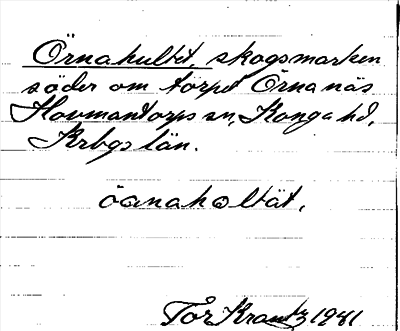 Örnahultet, skogsmarken
söder om torpet Örnanäs
Hovmantorps sn, Konga hd,
Krbgs län.
öɑnahɷltät.
Tor Krantz 1941